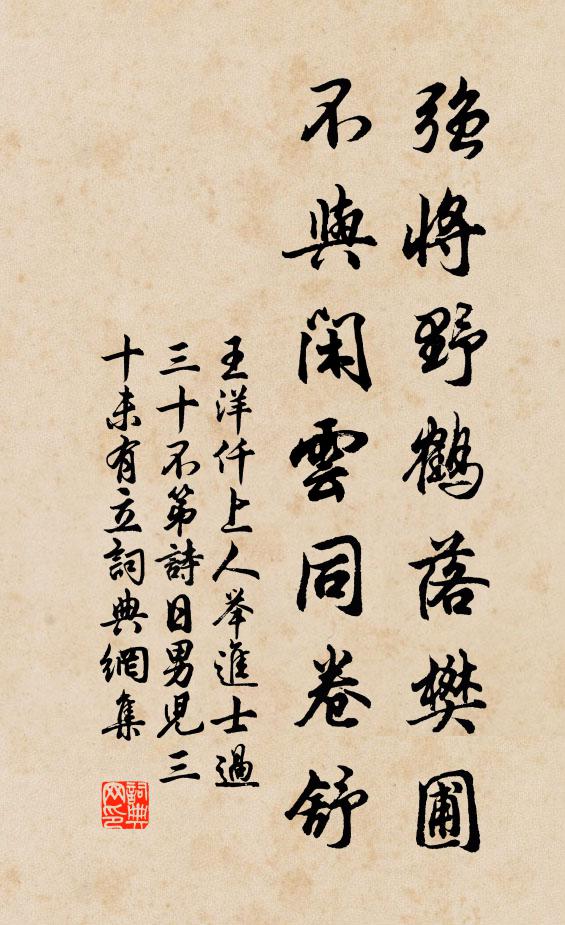 强將野鶴落樊圃
不與閑雲同卷舒
王洋仟上人举進士過
三十不第詩日男児三
十未有立詞典網集
詞典
网印